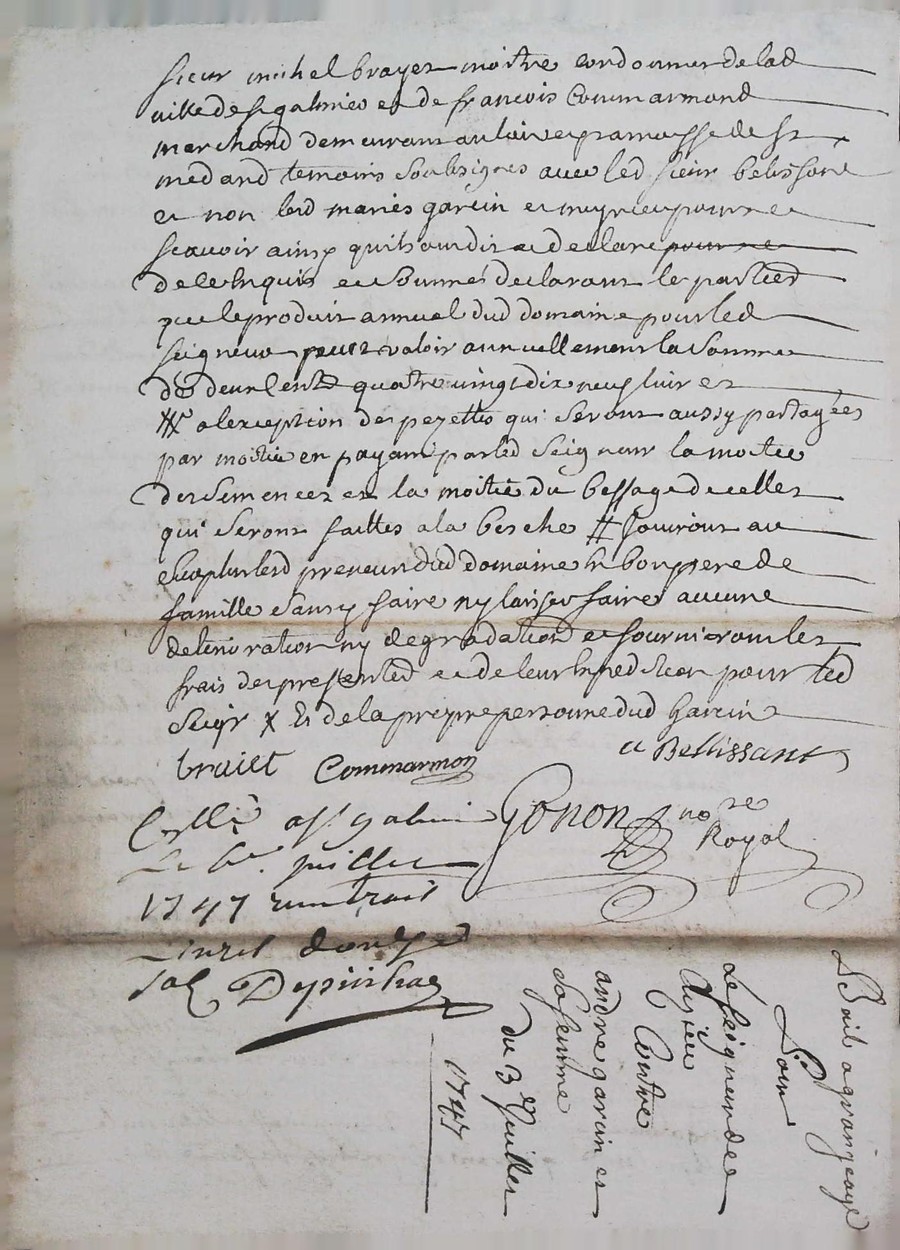 sieur michel brayet maitre cordonnier de lad
ville de st galmier et de francois Commarmond
marchand demeurant au lieu et parroisse de st
medard temoins soubsignes avec led sieur belissant
et non lesd maries garcin et meyrieu pour ne
scavoir ainsy quils ont dit et declare pour ne
de ce enquis et sommés declarant les parties
que le produit annuel dud domaine pour led
seigneur peut valoir annuellement la somme
de deux cents quatre vingt dix neuf livres
# a lexception des pezettes qui seront aussy partagées
par moitié en payant par led seigneur la moitié
des semences et la moitié du bessage de celles
qui seront faittes a la besche # jouiront au
surplus lesd preneurs dud domaine en bon pere de
famille sans y faire ny laisser faire aucune
deterioration ny degradation et fourniront les
frais des presentes et de leur expedition pour led
seigr x Et de la propre personne dud garcin
braiet Commarmon a Bellissant
Collé a st galmier Gonon no re
Le 6e juillet Royal
1747 recu trois
livres douze
sol Depuishac
Bail a grangeage
Pour
Le seigneur de
Cuzieu
Contre
andre garcin et
sa femme
du 3e Juillet
1747